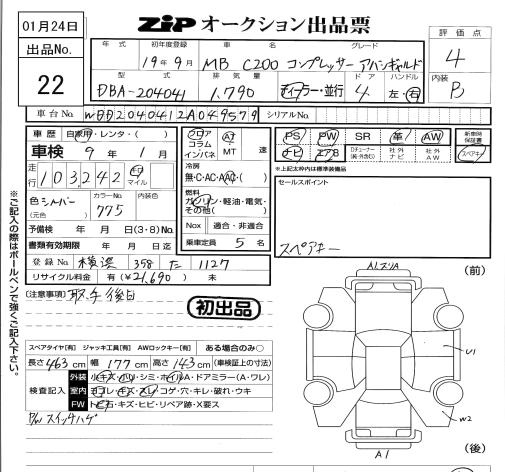 01月24日
ZiP オークション出品票
出品No.
22
年式
初年度登録
車名
グレード
19年9月
MB C200 コンプレッサー アバンギャルド
型式
排気量
ドア
ハンドル
DBA-204041
1.790
ディーラー・並行
4
左・右
評価点
4
内装
B
車台No.
WDD2040412A049579
シリアルNo.
車歴 自家用・レンタ・( )
車検 9年1月
走行 103,242 キロ マイル
色 シルバー (元色)
カラーNo. 775
内装色
予備検 年 月 日(3・8)No.
書類有効期限 年 月 日迄
登録No. 横浜 358 た 1127
リサイクル料金 有(¥21,690) 未
フロア コラム インパネ
AT MT 速
冷房
無・C・AC・AAC・( )
燃料
ガソリン・軽油・電気・その他( )
Nox 適合・非適合
乗車定員 5 名
PS PW SR 革 AW
ナビ エアB Dチューナー(純・外含む) 社外ナビ 社外AW
新車時保証書
スペアキー
※上記太枠内は標準装備品
セールスポイント
スペアキー
[注意事項] 取手後日
初出品
スペアタイヤ[有] ジャッキ工具[有] AWロックキー[有] ある場合のみ○
長さ463cm 幅177cm 高さ143cm (車検証上の寸法)
検査記入
外装 小キズ・小凹・シミ・ホイルA・ドアミラー(A・ワレ)
室内 ヨゴレ・キズ・スレ・コゲ・穴・キレ・破れ・ウキ
FW トビ石・キズ・ヒビ・リペア跡・X要ス
P/Wスイッチハゲ
※ご記入の際はボールペンで強くご記入下さい。
(前)
U1
W2
A1
(後)